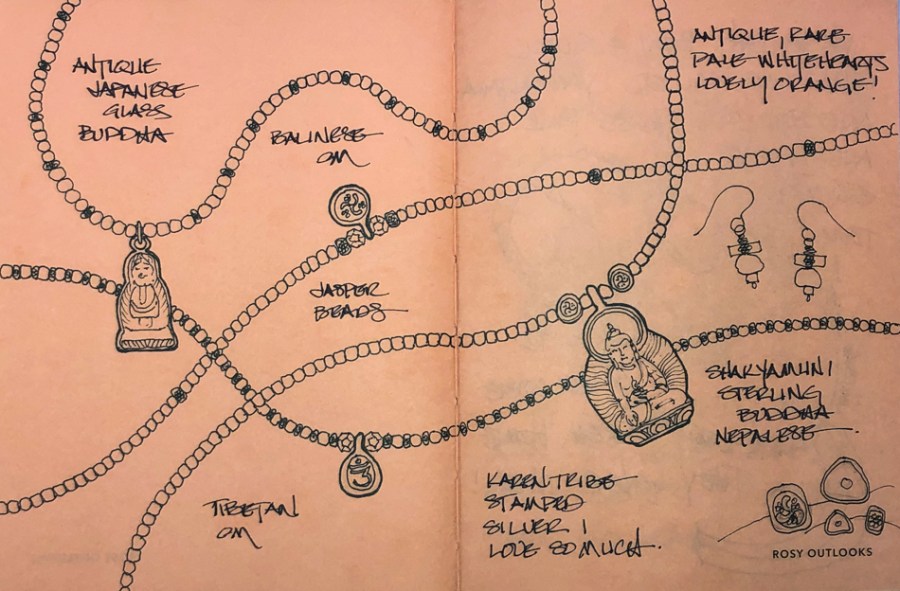 ANTIQUE
JAPANESE
GLASS
BUDDHA
BALINESE
OM
JASPER
BEADS
TIBETAN
OM
ANTIQUE, RARE
PALE WHITEHEARTS
LOVELY ORANGE!
SHAKYAMUNI
STERLING
BUDDHA
NEPALESE.
KAREN TRIBE
STAMPED
SILVER I
LOVE SO MUCH.
ROSY OUTLOOKS